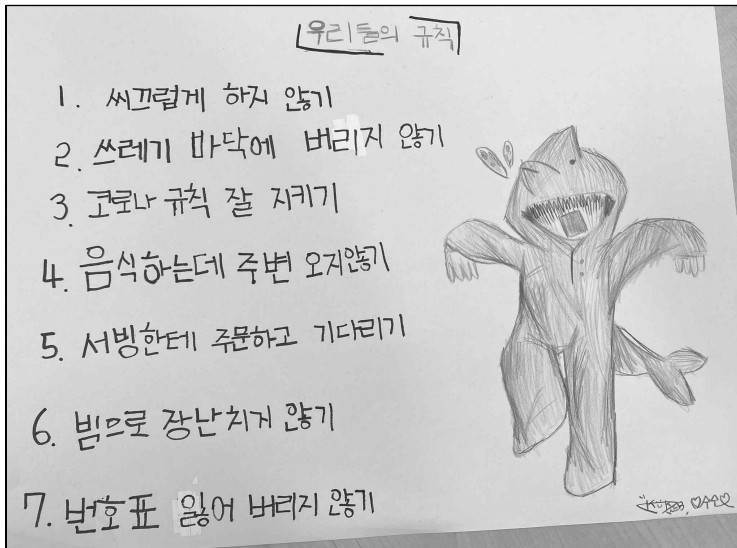 우리들의 규칙
1. 씨끄럽게 하지 않기
2. 쓰레기 바닥에 버리지 않기
3. 코로나 규칙 잘 지키기
4. 음식하는데 주변 오지않기
5. 서빙한테 주문하고 기다리기
6. 빔으로 장난치지 않기
7. 번호표 잃어 버리지 않기